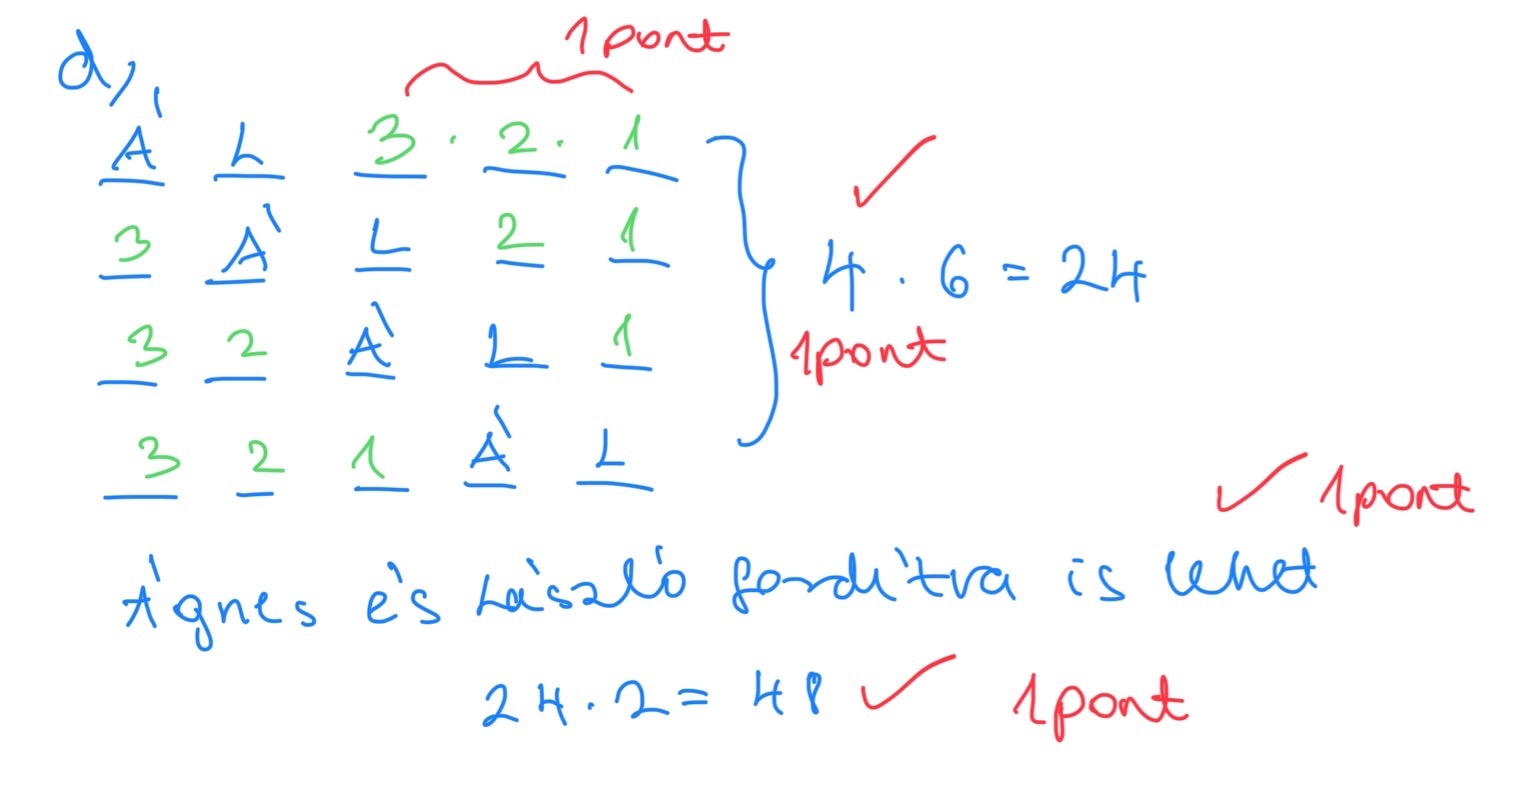 1 pont
d),
Á L 3 · 2 · 1
3 Á L 2 1
4 · 6 = 24
3 2 Á L 1
1 pont
3 2 1 Á L
1 pont
Ágnes és László fordítva is lehet
24 · 2 = 48 1 pont